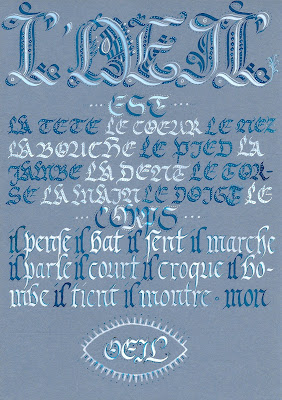 L'OEIL
... EST ...
LA TETE LE COEUR LE NEZ
LA BOUCHE LE PIED LA
JAMBE LA DENT LE TOR-
SE LA MAIN LE DOIGT LE
... CORPS ...
il pense il bat il sent il marche
il parle il court il croque il bo-
mbe il tient il montre - mon
OEIL